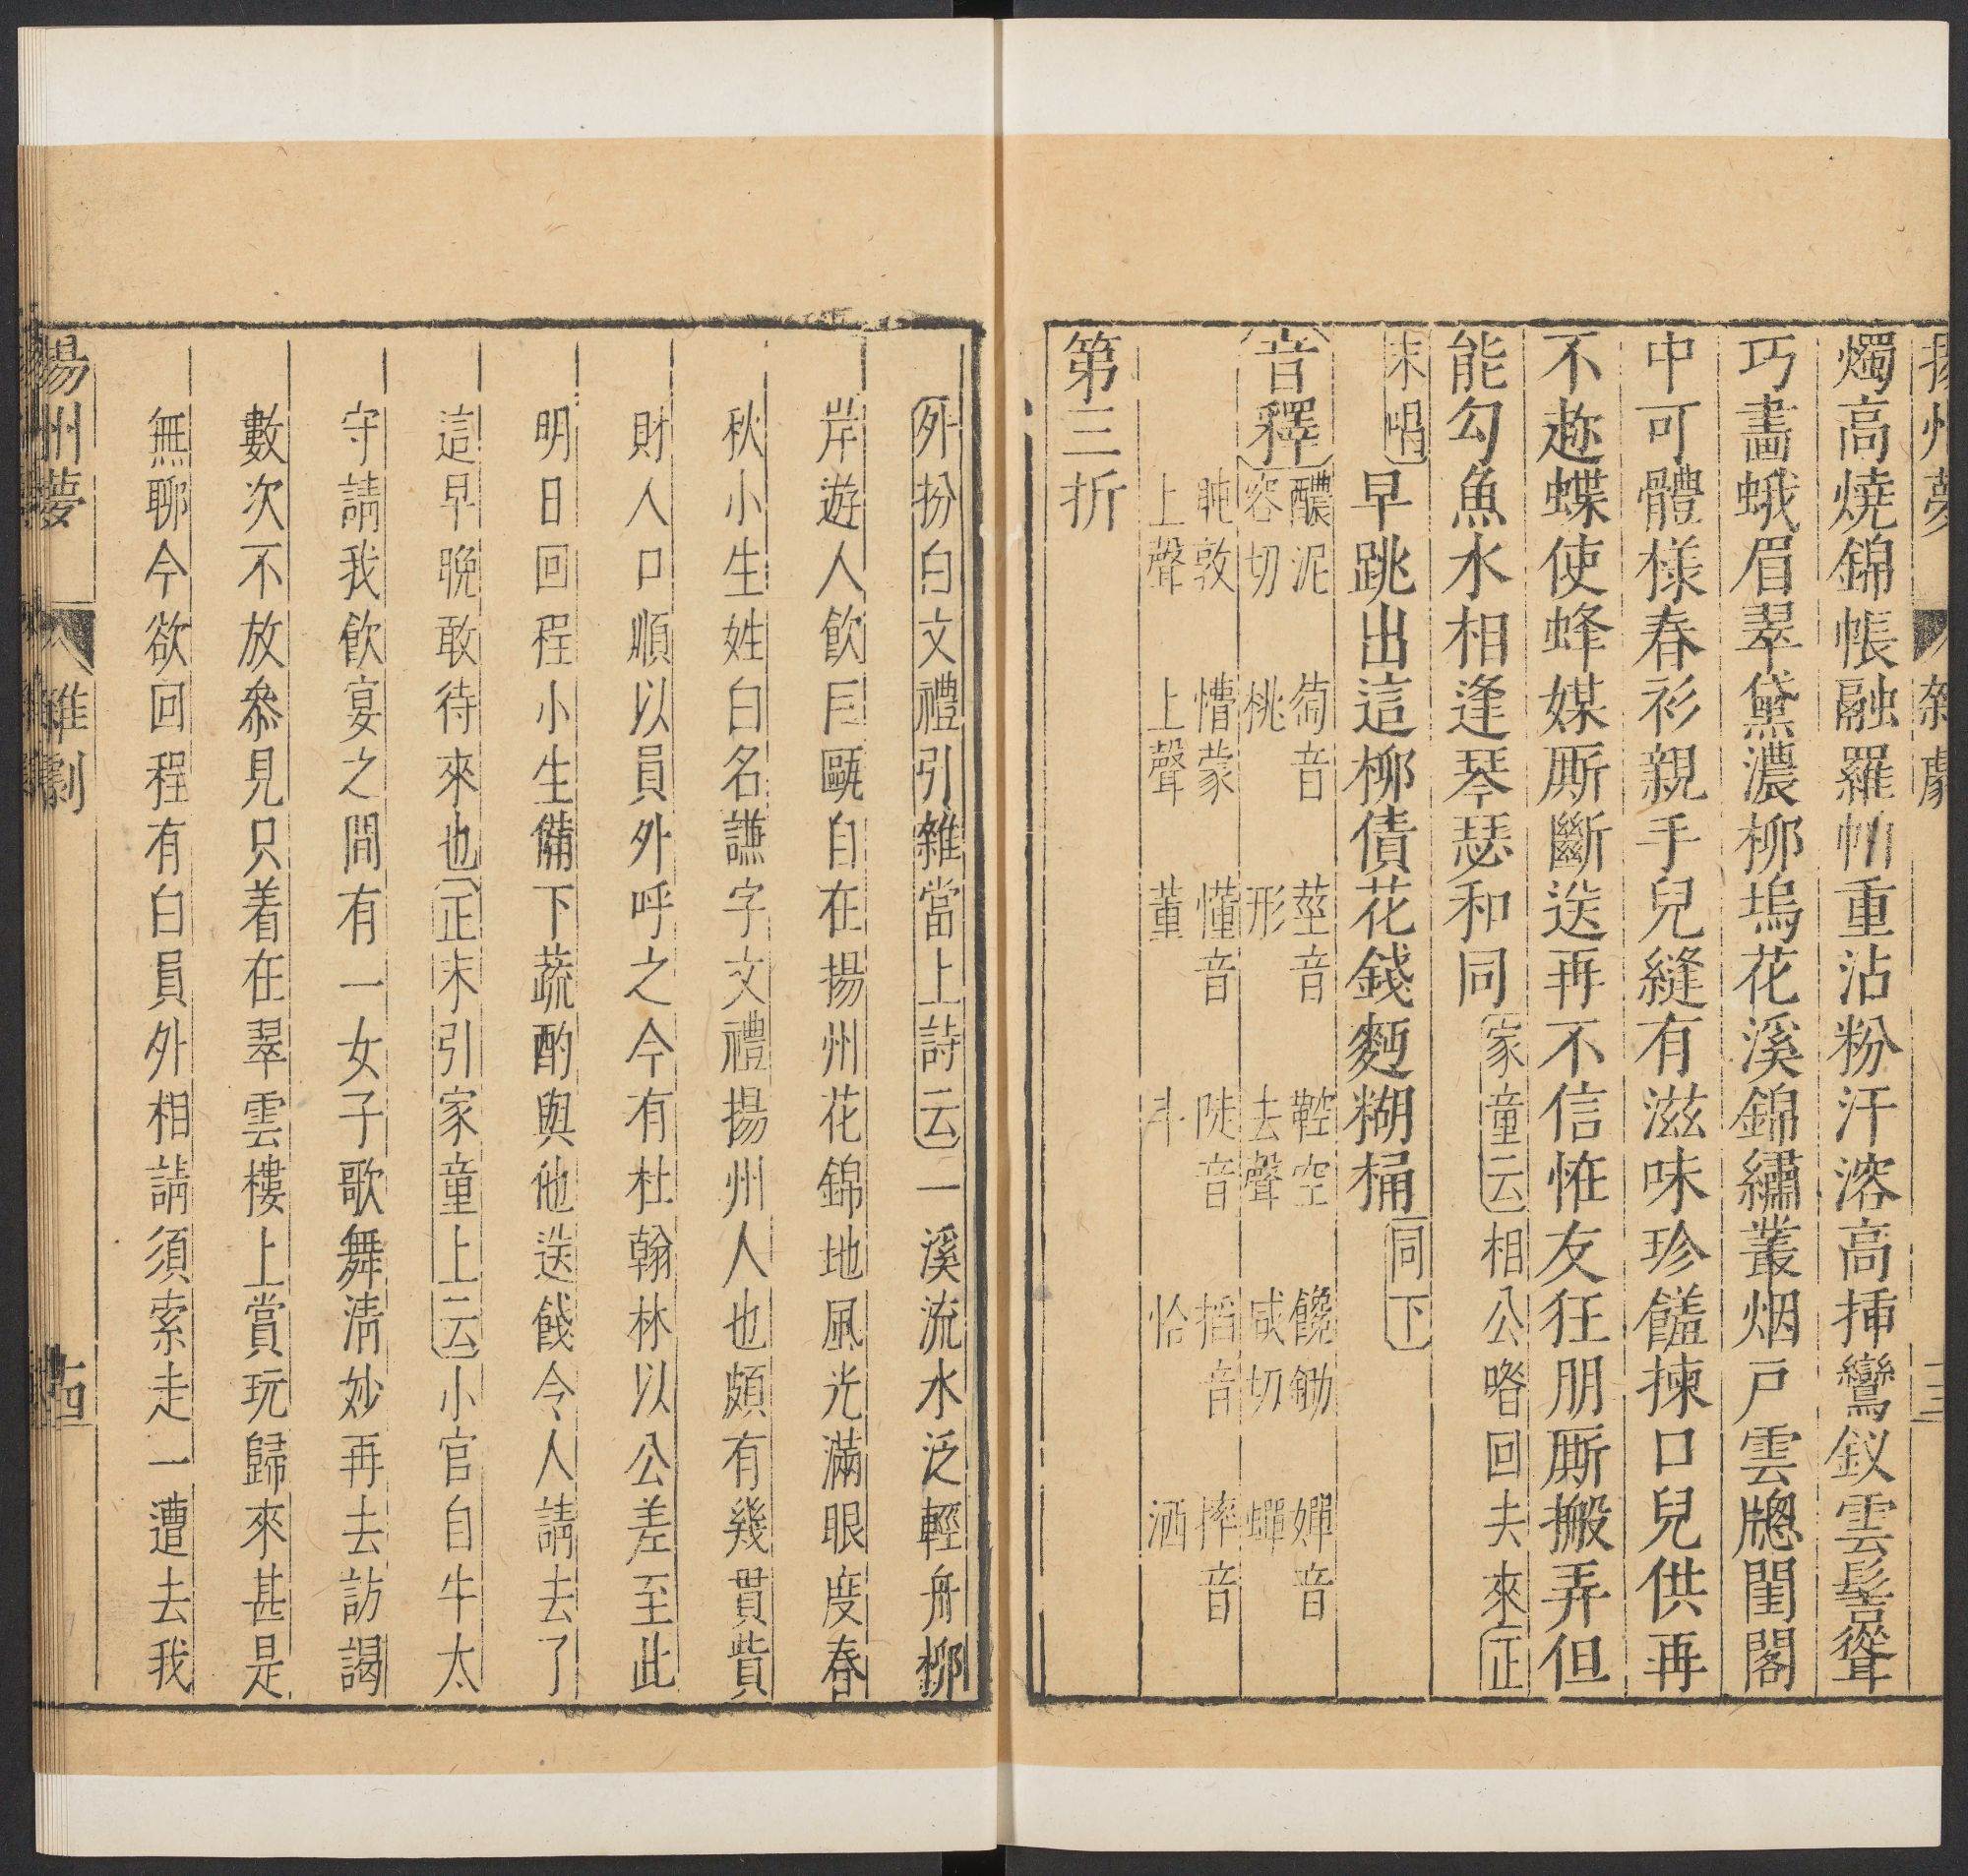 揚州夢 雜劇 十三
燭高燒錦帳融羅幃重沾粉汗溶高揷鸞釵雲髻聳
巧畵蛾眉翠黛濃柳塢花溪錦繡叢烟戸雲牕閨閣
中可體樣春衫親手兒縫有滋味珍饈揀口兒供再
不趂蝶使蜂媒厮斷送再不信恠友狂朋厮搬弄但
能勾魚水相逢琴瑟和同家童云相公喒回去來正
末唱早跳出這柳債花錢麪糊桶同下
音釋 醲泥容切 萄音桃 莖音形 鞚空去聲 饞鋤咸切 嬋音蟬
盹敦上聲 懵蒙上聲 懂音董 陡音斗 掐音恰 摔音洒
第三折
外扮白文禮引雜當上詩云一溪流水泛輕舟柳
岸遊人飲巨甌自在揚州花錦地風光滿眼度春
秋小生姓白名謙字文禮揚州人也頗有幾貫貲
財人口順以員外呼之今有杜翰林以公差至此
明日回程小生備下蔬酌與他送餞令人請去了
這早晩敢待來也正末引家童上云小官自牛太
守請我飲宴之間有一女子歌舞淸妙再去訪謁
數次不放叅見只着在翠雲樓上賞玩歸來甚是
無聊今欲回程有白員外相請須索走一遭去我
揚州夢 雜劇 十四